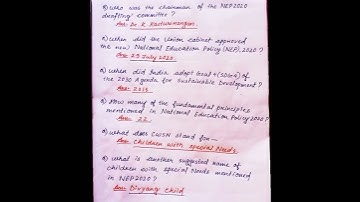 Q) Who was the chairman of the NEP2020
drafting committee?
Ans- Dr. K Kasturirangan.
Q) When did the Union cabinet approved
the new National Education Policy (NEP), 2020?
Ans- 29 July 2020.
Q) When did India adopt Goal 4 (SDG4) of
the 2030 Agenda for Sustainable Development?
Ans- 2015.
Q) How many of the fundamental principles
mentioned in National Education Policy 2020?
Ans- 22.
Q) What does CWSN stand for—
Ans- Children with special Needs.
Q) What is another suggested name of
children with special Needs mentioned
in NEP2020?
Ans- Divyang Child